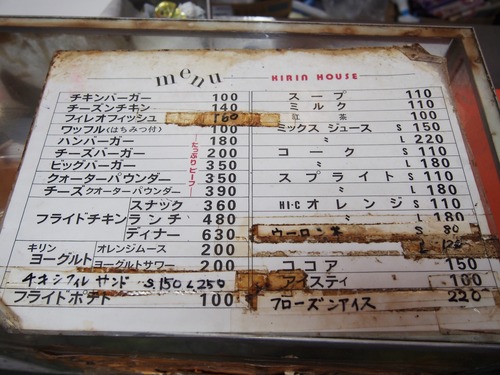 menu
KIRIN HOUSE
チキンバーガー 100
チーズンチキン 140
フィレオフィッシュ 160
ワッフル(はちみつ付) 100
ハンバーガー 180
チーズバーガー 200
ビッグバーガー 350
クォーターパウンダー 350
チーズクォーターパウンダー 390
たっぷりビーフ
フライドチキン
スナック 360
ランチ 480
ディナー 630
キリン
ヨーグルト
オレンジムース 200
ヨーグルトサワー 200
チキンフィレサンド S.150 L250
フライドポテト 100
スープ 110
ミルク 110
紅茶 100
ミックス ジュース S 150
〃 L 220
コーク S 110
〃 L 180
スプライト S 110
〃 L 180
HI-C オレンジ S 110
〃 L 180
ウーロン茶 S 80
L 120
ココア 150
アイスティ 100
フローズンアイス 220